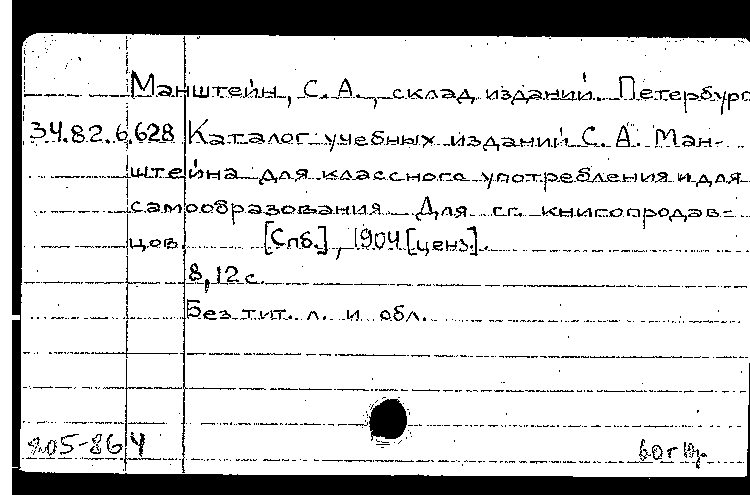 Манштейн, С. А., склад изданий. Петербург
34.82.6.628 Каталог учебных изданий С. А. Ман-
штейна для классного употребления и для
самообразования. Для гг. книгопродав-
цов. [Спб.], 1904 [ценз.].
8, 12 с.
Без тит. л. и обл.
805-86 4
60 г